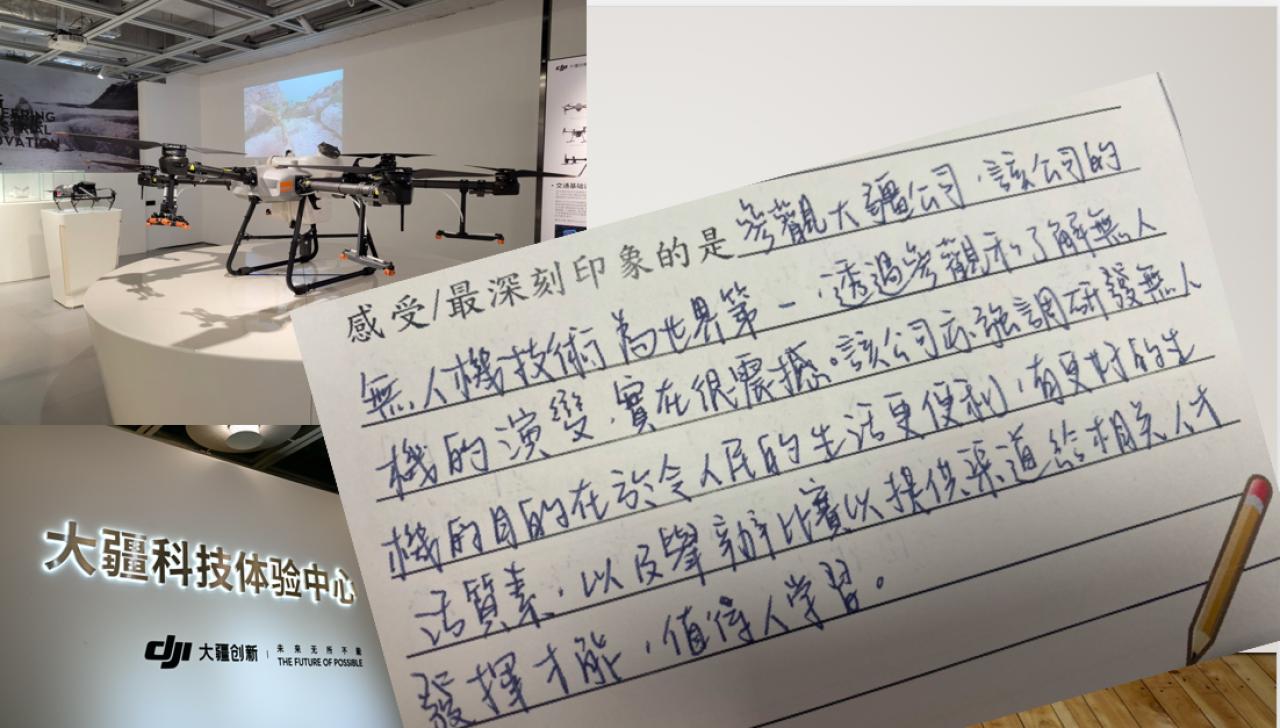 EERING
STRIAL
OVATION
dji
交通基础
大疆科技体验中心
dji 大疆创新 | 未来无所不能
THE FUTURE OF POSSIBLE
感受/最深刻印象的是參觀大疆公司，該公司的
無人機技術為世界第一，透過參觀和了解無人
機的演變，實在很震撼。該公司亦強調研發無人
機的目的在於令人民的生活更便利，有更好的生
活質素，以及舉辦比賽以提供渠道給相关人才
發揮才能，值得人学習。